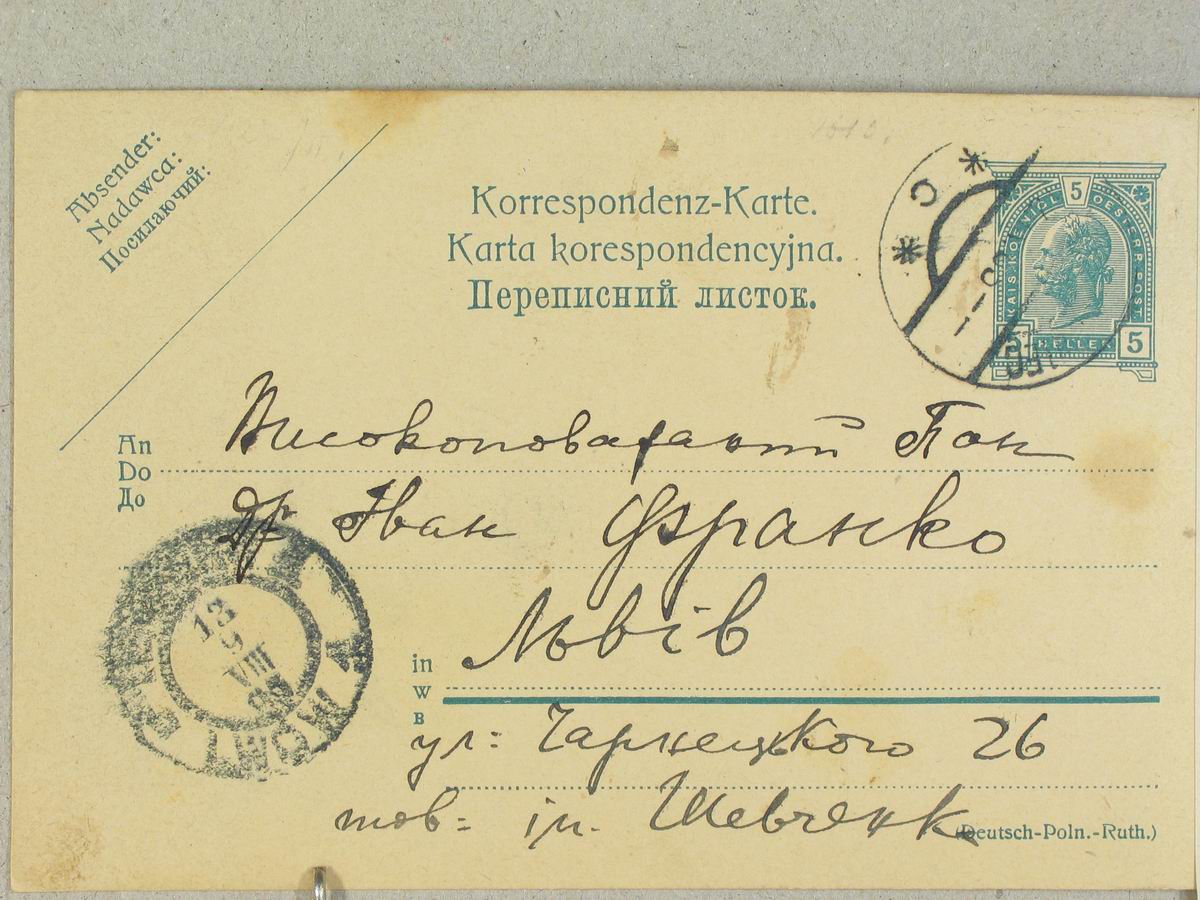 Absender:
Nadawca:
Посилаючий:
Korrespondenz-Karte.
Karta korespondencyjna.
Переписний листок.
5
KAIS. KOENIGL. OESTERR. POST.
5 HELLER 5
C
An
Do
До
Високоповажаний Пан
Др Іван Франко
in
w
в
Львів
ул: Чарнецького 26
тов: ім. Шевченк
(Deutsch-Poln.-Ruth.)
13
9
VIII